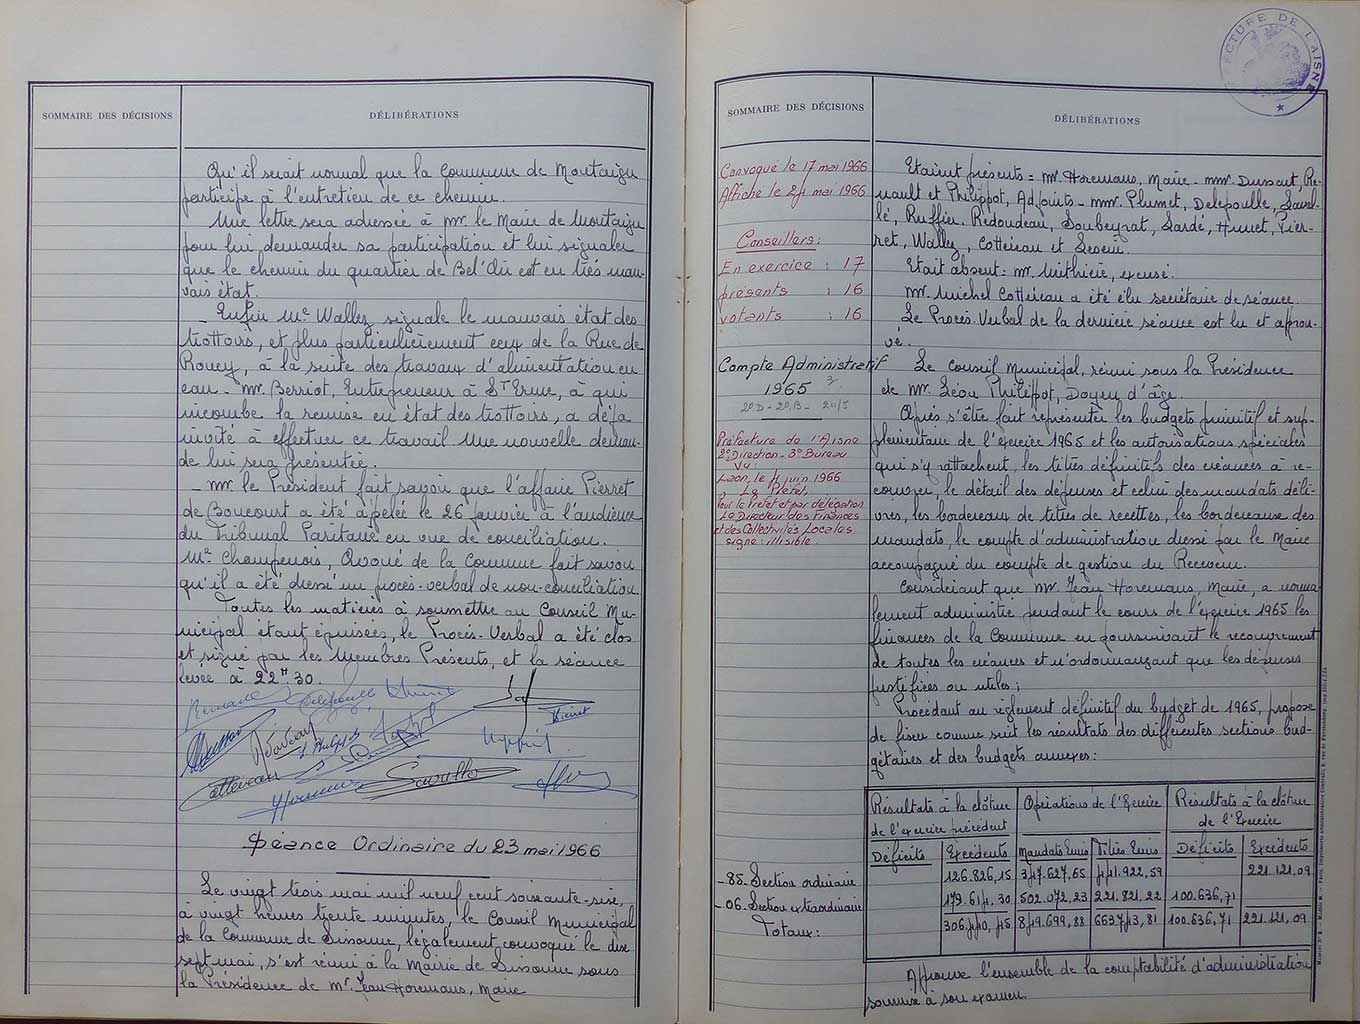 SOMMAIRE DES DÉCISIONS
DÉLIBÉRATIONS
Qu'il serait normal que la Commune de Montaigu
participe à l'entretien de ce chemin.
Une lettre sera adressée à Mr. le Maire de Montaigu
pour lui demander sa participation et lui signaler
que le chemin du quartier de Bel'Air est en très mau-
vais état.
- Enfin Me Wallez signale le mauvais état des
trottoirs, et plus particulièrement ceux de la Rue de
Roucy, à la suite des travaux d'alimentation en
eau - Mr. Berriot, Entrepreneur à St Erme, à qui
incombe la remise en état des trottoirs, a déjà
invité à effectuer ce travail. Une nouvelle deman-
de lui sera présentée.
- Mr. le Président fait savoir que l'affaire Pierret
de Boucourt a été apelée le 26 janvier à l'audience
du Tribunal Paritaire en vue de conciliation.
Me Champenois, Avoué de la Commune fait savoir
qu'il a été dressé un procès-verbal de non-conciliation.
Toutes les matières à soumettre au Conseil Mu-
nicipal étant épuisées, le Procès-Verbal a été clos
et signé par les Membres Présents, et la séance
levée à 22H 30.
Séance Ordinaire du 23 mai 1966
Le vingt trois mai mil neuf cent soixante-six,
à vingt heures trente minutes, le Conseil Municipal
de la Commune de Sissonne, légalement convoqué le dix
sept mai, s'est réuni à la Mairie de Sissonne sous
la Présidence de Mr. Jean Horemans, Maire
SOMMAIRE DES DÉCISIONS
DÉLIBÉRATIONS
PRÉFECTURE DE L'AISNE
Convoqué le 17 mai 1966
Affiché le 24 mai 1966
Conseillers:
En exercice : 17
présents : 16
votants : 16
Compte Administratif
1965
Préfecture de l'Aisne
2e Direction - 3e Bureau
Vu:
Laon, le 4 juin 1966
Le Préfet,
Pour le Préfet et par délégation
Le Directeur des Finances
et des Collectivités Locales
signé: illisible.
Etaient présents = Mr. Horemans, Maire - MM. Dussart, Re-
nault et Philippot, Adjoints - MM. Plumet, Delepoulle, Savil-
lé, Ruffier, Redoudeau, Soubeyrat, Lardé, Hunet, Pier-
ret, Wallez, Cottereau et
Etait absent: Mr. excusé.
Mr. Michel Cottereau a été élu secrétaire de séance.
Le Procès-Verbal de la dernière séance est lu et approu-
vé.
Le Conseil Municipal, réuni sous la Présidence
de Mr. Léon Philippot, Doyen d'âge.
Après s'être fait représenter les budgets primitif et sup-
plémentaire de l'exercice 1965 et les autorisations spéciales
qui s'y rattachent, les titres définitifs des créances à re-
couvrer, le détail des dépenses et celui des mandats déli-
vrés, les bordereaux de titres de recettes, les bordereaux des
mandats, le compte d'administration dressé par le Maire
accompagné du compte de gestion du Receveur.
Considérant que Mr. Jean Horemans, Maire, a norma-
lement administré pendant le cours de l'exercice 1965 les
finances de la Commune en poursuivant le recouvrement
de toutes les créances et n'ordonnançant que les dépenses
justifiées ou utiles;
Procédant au règlement définitif du budget de 1965, propose
de fixer comme suit les résultats des différentes sections bud-
gétaires et des budgets annexes:
Résultats à la clôture de l'exercice précédent
Opérations de l'Exercice
Résultats à la clôture de l'Exercice
Déficits Excédents Mandats Emis Titres Emis Déficits Excédents
- 85- Section ordinaire 126.826,15 347.627,65 441.922,59 221.121.09
- 06- Section extraordinaire 179.614,30 502.072,23 221.821,22 100.636,71
Totaux: 306.440,45 849.699,88 663.743,81 100.636,71 221.121,09
Approuve l'ensemble de la comptabilité d'administration
soumise à son examen.